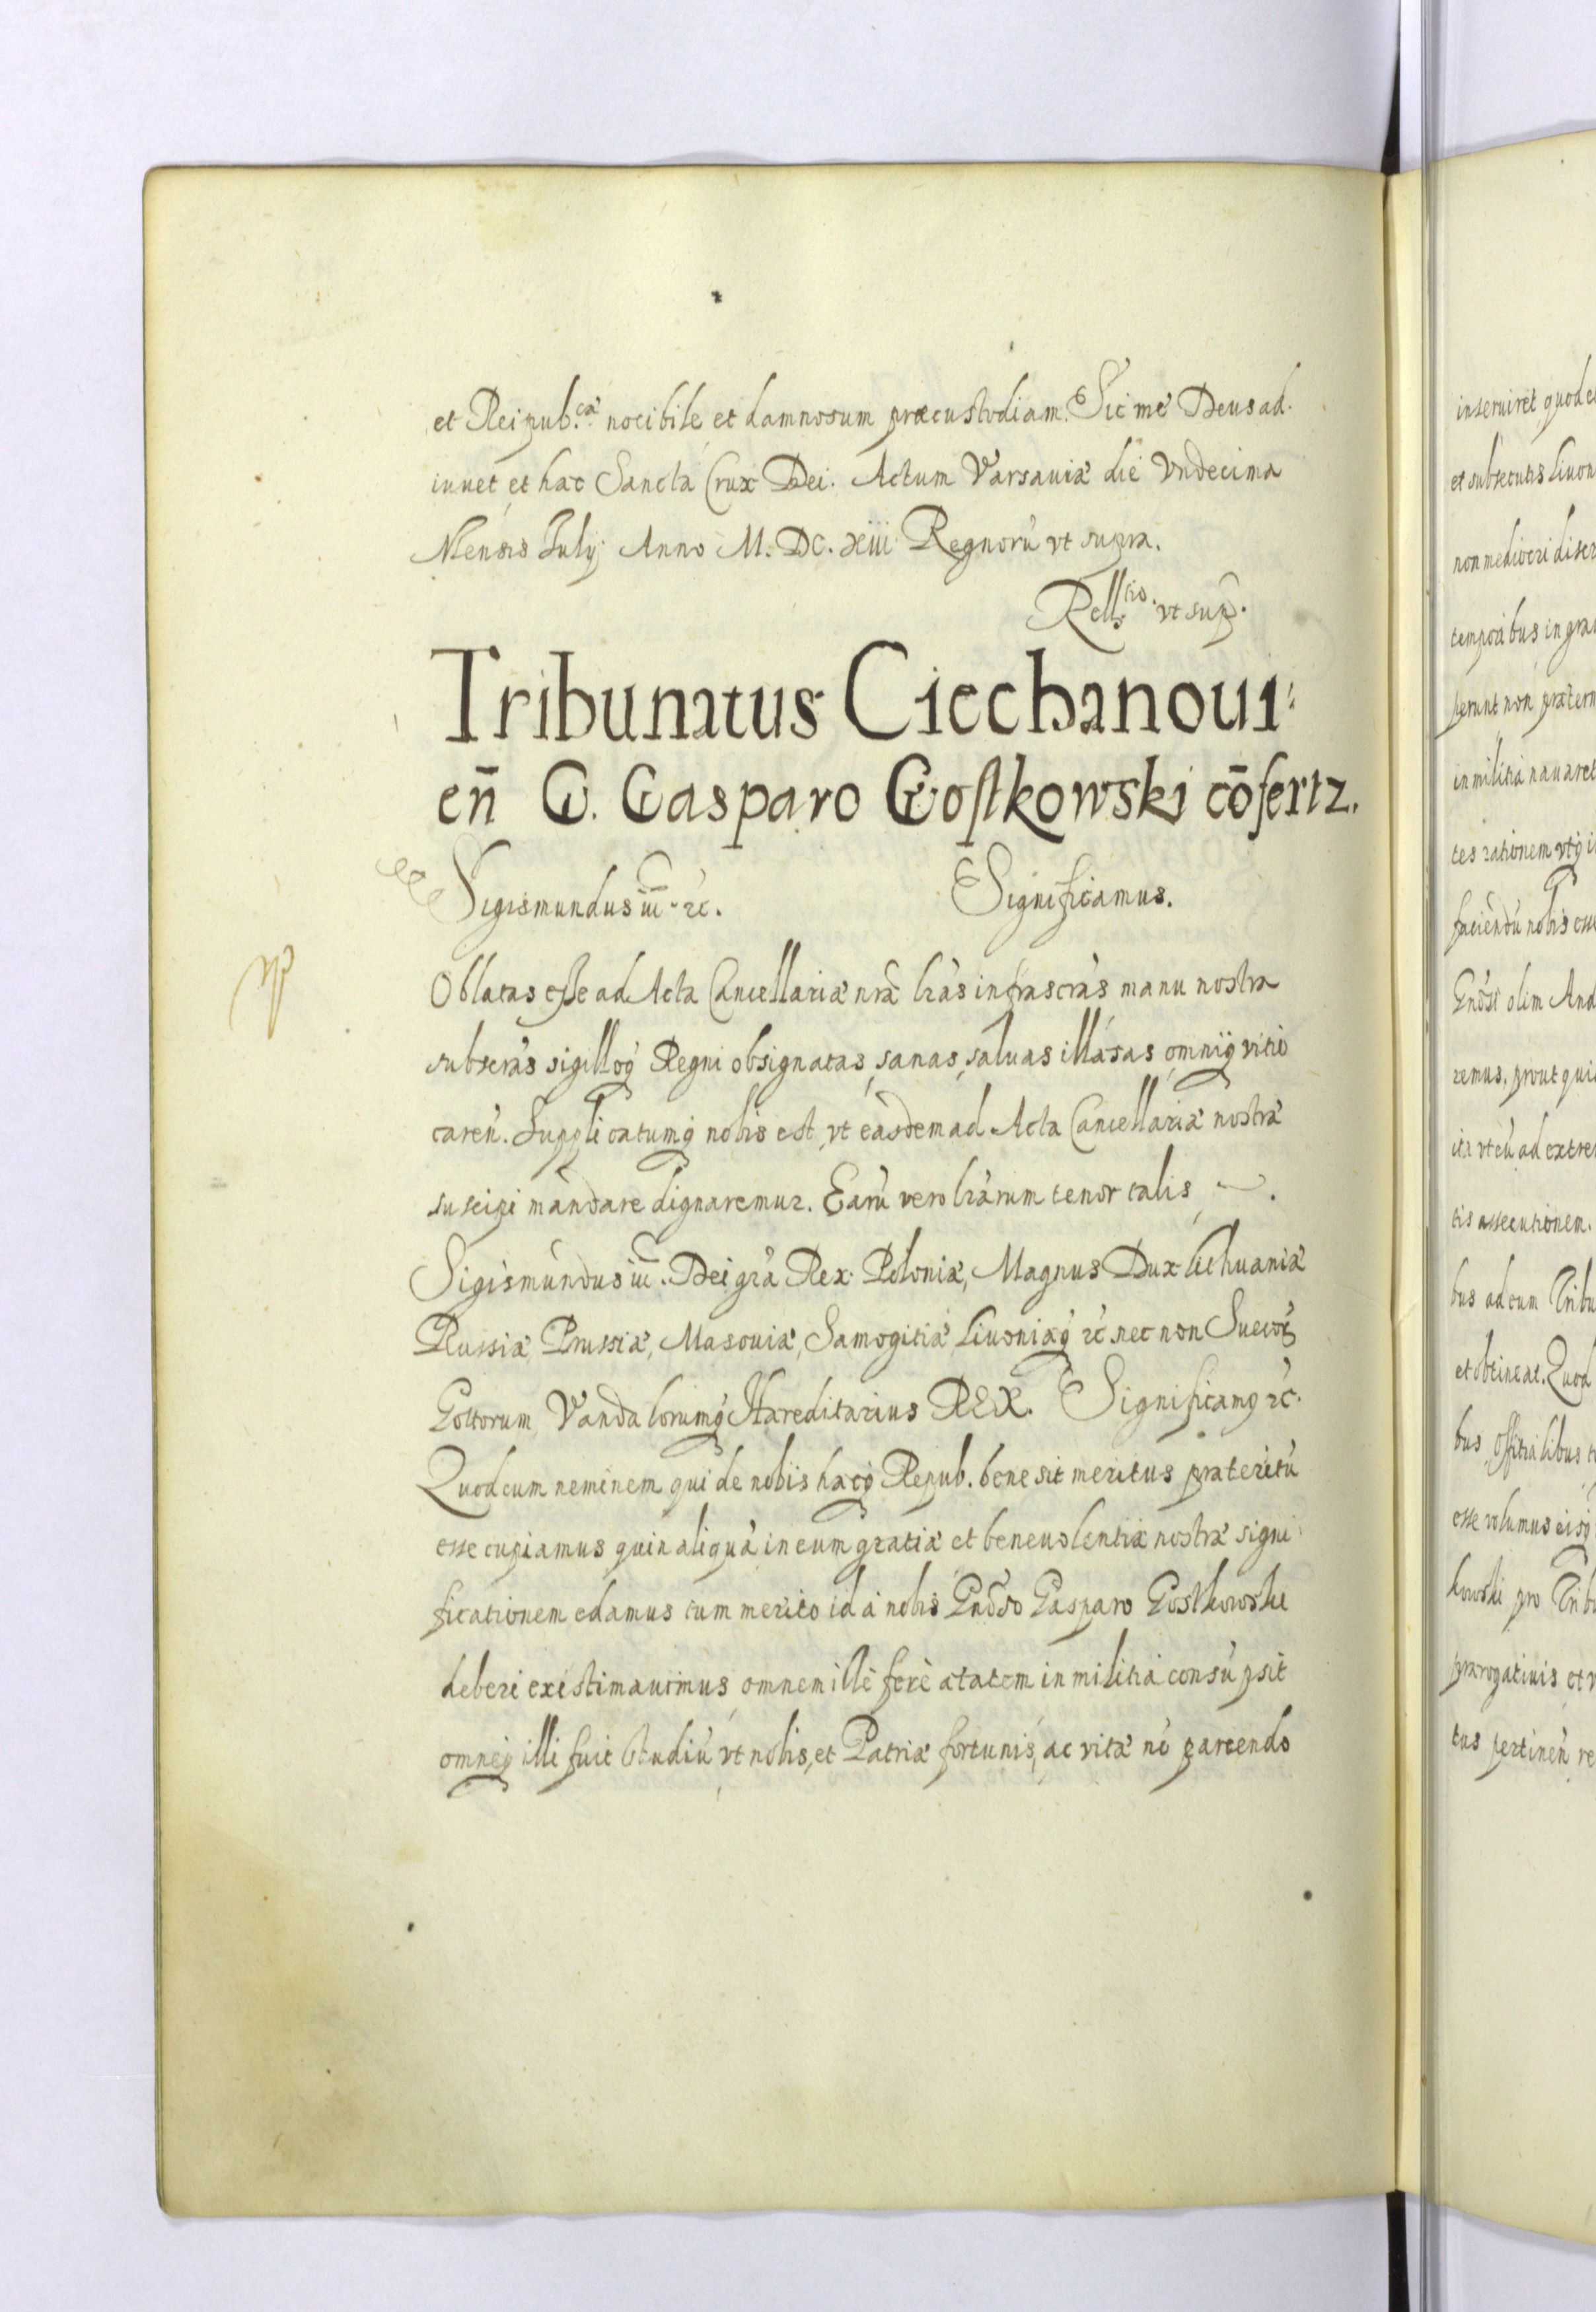 et Reipub.cæ nocibile et damnosum præcustodiam. Sic me Deus ad-
iuuet et hæc Sancta Crux Dei. Actum Varsauiæ die Vndecima
Mensis July Anno M. DC. xiii Regnorũ vt supra.
Rell:tio vt sup.
Tribunatus Ciechanoui-
eñ G. Gasparo Gostkowski cõfertz.
Sigismundus iii. &c. Significamus.
Oblatas esse ad Acta Cancellariæ nræ lras infrascras manu nostra
subscras sigilloq Regni obsignatas, sanas, saluas illæsas, omniq vitio
careñ. Supplicatumq nobis est, vt easdem ad Acta Cancellariæ nostræ
suscipi mandare dignaremur. Earũ vero lrarum tenor talis
Sigismundus iii. Dei gra Rex Poloniæ, Magnus Dux Lithuaniæ
Russiæ, Prussiæ, Masouiæ, Samogitiæ, Liuoniæq &c nec non Suecor
Gottorum Vandalorumq Hæreditarius REX. Significamq &c.
Quod cum neminem qui de nobis hacq Repub. bene sit meritus præteritũ
esse cupiamus quin aliquã in eum gratiæ et beneuolentiæ nostræ signi-
ficationem edamus tum merito id à nobis Gnoso Gasparo Gostkowski
deberi existimauimus, omnem ille ferè ætatem in militia consũpsit
omneq illi fuit studiũ vt nobis, et Patriæ fortunis, ac vitæ nõ parcendo
inseruiret quod
et subsecutis Liuon
non mediocri
temporibus in
in militia nauaret
tes rationem vtq
faciendũ nobis
olim And
remus. prout qui
ita vt eũ ad extre
tis assecutionem.
bus ad eum Tribu
et obtineat. Quod
bus Officialibus
esse volumus
kowski pro Trib
prærogatiuis et
tus pertineñ re